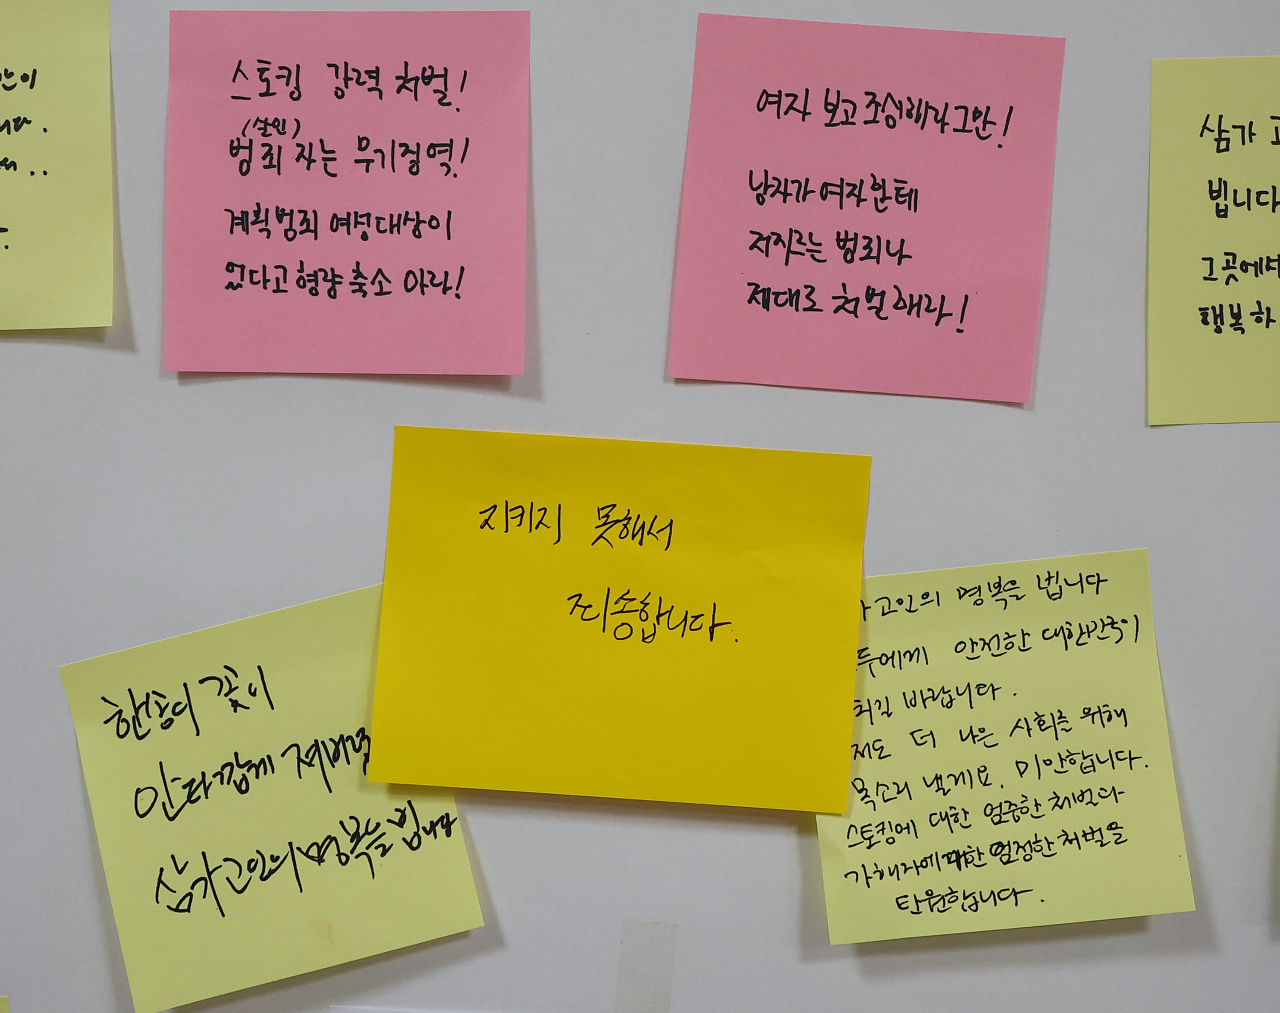 스토킹 강력 처벌!
(살인)
범죄자는 무기징역!
계획범죄 여성대상이
었다고 형량 축소 마라!
여자 보고 조심해라 그만!
남자가 여자한테
저지르는 범죄나
제대로 처벌해라!
삼가
빕니다
그곳에서
행복하
지키지 못해서
죄송합니다.
한송이 꽃이
안타깝게 져버렸
삼가 고인의 명복을 빕니다
고인의 명복을 빕니다
두에게 안전한 대한민국이
되길 바랍니다.
저도 더 나은 사회를 위해
목소리 낼게요. 미안합니다.
스토킹에 대한 엄중한 처벌과
가해자에 대한 엄정한 처벌을
탄원합니다.